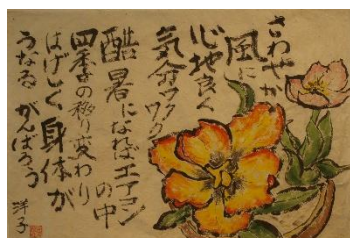 さわやか
風に
心地良く
気分ワクワク
酷暑になればエアコン
の中
四季の移り変わり
はげしく身体が
うなる がんばろう
洋子